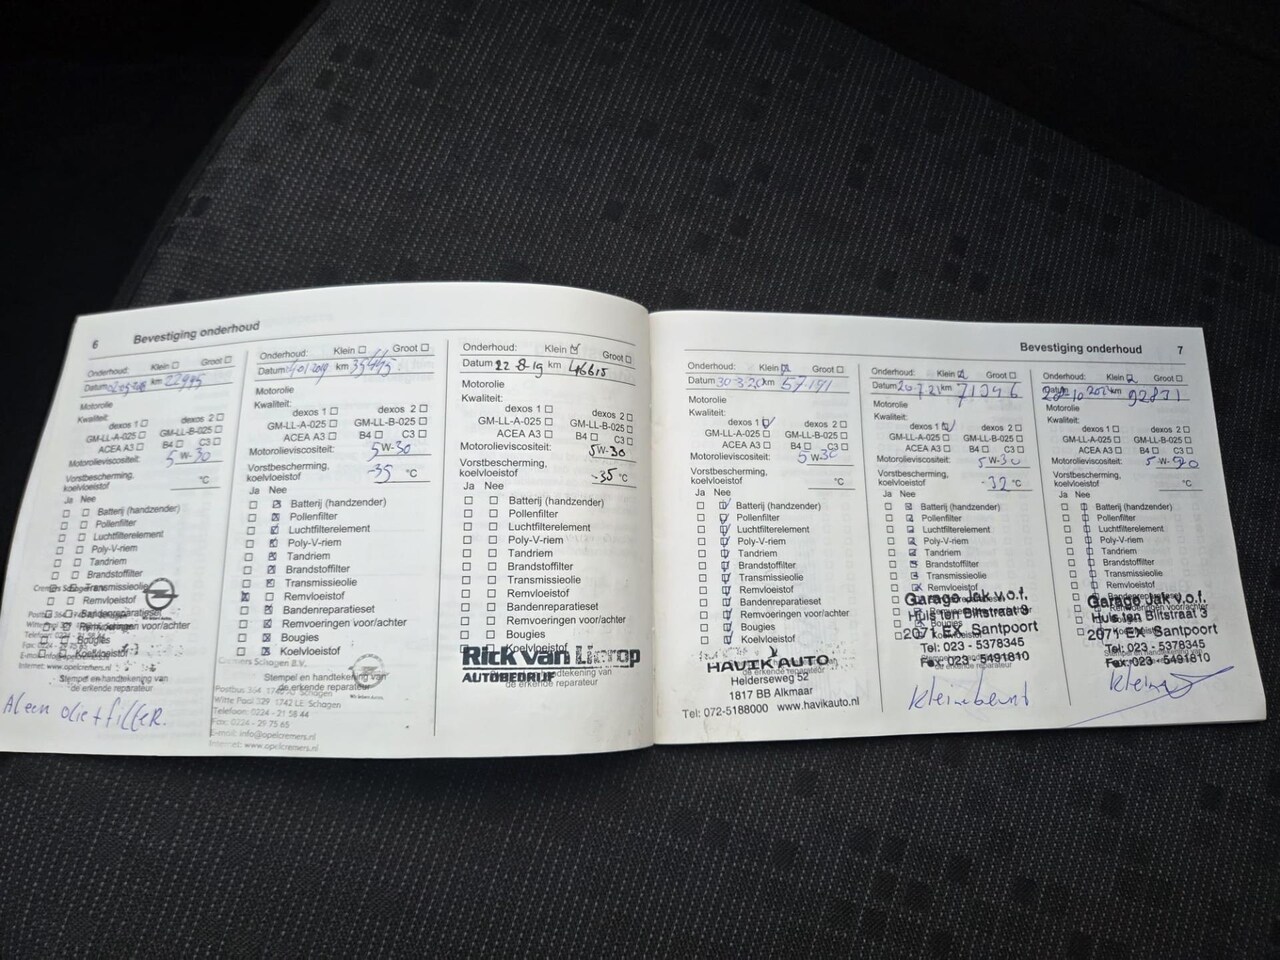 6 Bevestiging onderhoud
Klein ☐ Groot ☐
Datum km 22995
Motorolie
Kwaliteit:
dexos 1 ☐ dexos 2 ☐
GM-LL-A-025 ☐ GM-LL-B-025 ☐
ACEA A3 ☐ B4 ☐ C3 ☐
Motorolieviscositeit: 5 W-30
Vorstbescherming,
koelvloeistof °C
Ja Nee
Batterij (handzender)
Pollenfilter
Luchtfilterelement
Poly-V-riem
Tandriem
Brandstoffilter
Transmissieolie
Remvloeistof
Bandenreparatieset
Remvoeringen voor/achter
Bougies
Koelvloeistof
Internet: www.opelcremers.nl
Stempel en handtekening van
de erkende reparateur
Onderhoud: Klein ☐ Groot ☐
Datum km
Motorolie
Kwaliteit:
dexos 1 ☐ dexos 2 ☐
GM-LL-A-025 ☐ GM-LL-B-025 ☐
ACEA A3 ☐ B4 ☐ C3 ☐
Motorolieviscositeit: 5 W-30
Vorstbescherming,
koelvloeistof -35 °C
Ja Nee
Batterij (handzender)
Pollenfilter
Luchtfilterelement
Poly-V-riem
Tandriem
Brandstoffilter
Transmissieolie
Remvloeistof
Bandenreparatieset
Remvoeringen voor/achter
Bougies
Koelvloeistof
Cremers Schagen B.V.
Stempel en handtekening van
de erkende reparateur
Witte Paal 329 1742 LE Schagen
Telefoon: 0224 - 21 58 44
Fax: 0224 - 29 75 65
E-mail: info@opelcremers.nl
Internet: www.opelcremers.nl
Onderhoud: Klein ☑ Groot ☐
Datum 22-8-19 km 46615
Motorolie
Kwaliteit:
dexos 1 ☐ dexos 2 ☐
GM-LL-A-025 ☐ GM-LL-B-025 ☐
ACEA A3 ☐ B4 ☐ C3 ☐
Motorolieviscositeit: 5W-30
Vorstbescherming,
koelvloeistof -35 °C
Ja Nee
Batterij (handzender)
Pollenfilter
Luchtfilterelement
Poly-V-riem
Tandriem
Brandstoffilter
Transmissieolie
Remvloeistof
Bandenreparatieset
Remvoeringen voor/achter
Bougies
Koelvloeistof
Rick van
AUTOBEDRIJF
de erkende reparateur
Bevestiging onderhoud 7
Onderhoud: Klein ☑ Groot ☐
Datum 30 3 20 km 57191
Motorolie
Kwaliteit:
dexos 1 ☑ dexos 2 ☐
GM-LL-A-025 ☐ GM-LL-B-025 ☐
ACEA A3 ☐ B4 ☐ C3 ☐
Motorolieviscositeit: 5 W-30
Vorstbescherming,
koelvloeistof °C
Ja Nee
Batterij (handzender)
Pollenfilter
Luchtfilterelement
Poly-V-riem
Tandriem
Brandstoffilter
Transmissieolie
Remvloeistof
Bandenreparatieset
Remvoeringen voor/achter
Bougies
Koelvloeistof
HAVIK AUTO
Helderseweg 52
1817 BB Alkmaar
Tel: 072-5188000 www.havikauto.nl
Onderhoud: Klein ☑ Groot ☐
Datum 20-7-21 km 71346
Motorolie
Kwaliteit:
dexos 1 ☑ dexos 2 ☐
GM-LL-A-025 ☐ GM-LL-B-025 ☐
ACEA A3 ☐ B4 ☐ C3 ☐
Motorolieviscositeit: 5 W-30
Vorstbescherming,
koelvloeistof -32 °C
Ja Nee
Batterij (handzender)
Pollenfilter
Luchtfilterelement
Poly-V-riem
Tandriem
Brandstoffilter
Transmissieolie
Remvloeistof
Garage Jak v.o.f.
Huis ten Biltstraat 3
2071 EX Santpoort
Tel: 023 - 5378345
Fax: 023 - 5491810
Kleine beurt
Onderhoud: Klein Groot ☐
Datum km 92831
Motorolie
Kwaliteit:
dexos 1 ☐ dexos 2 ☐
GM-LL-A-025 ☐ GM-LL-B-025 ☐
ACEA A3 ☐ B4 ☐ C3 ☐
Motorolieviscositeit:
Vorstbescherming,
koelvloeistof °C
Ja Nee
Batterij (handzender)
Pollenfilter
Luchtfilterelement
Poly-V-riem
Tandriem
Brandstoffilter
Transmissieolie
Remvloeistof
Garage Jak v.o.f.
Huis ten Biltstraat 3
2071 EX Santpoort
Tel: 023 - 5378345
Fax: 023 - 5491810
Kleine